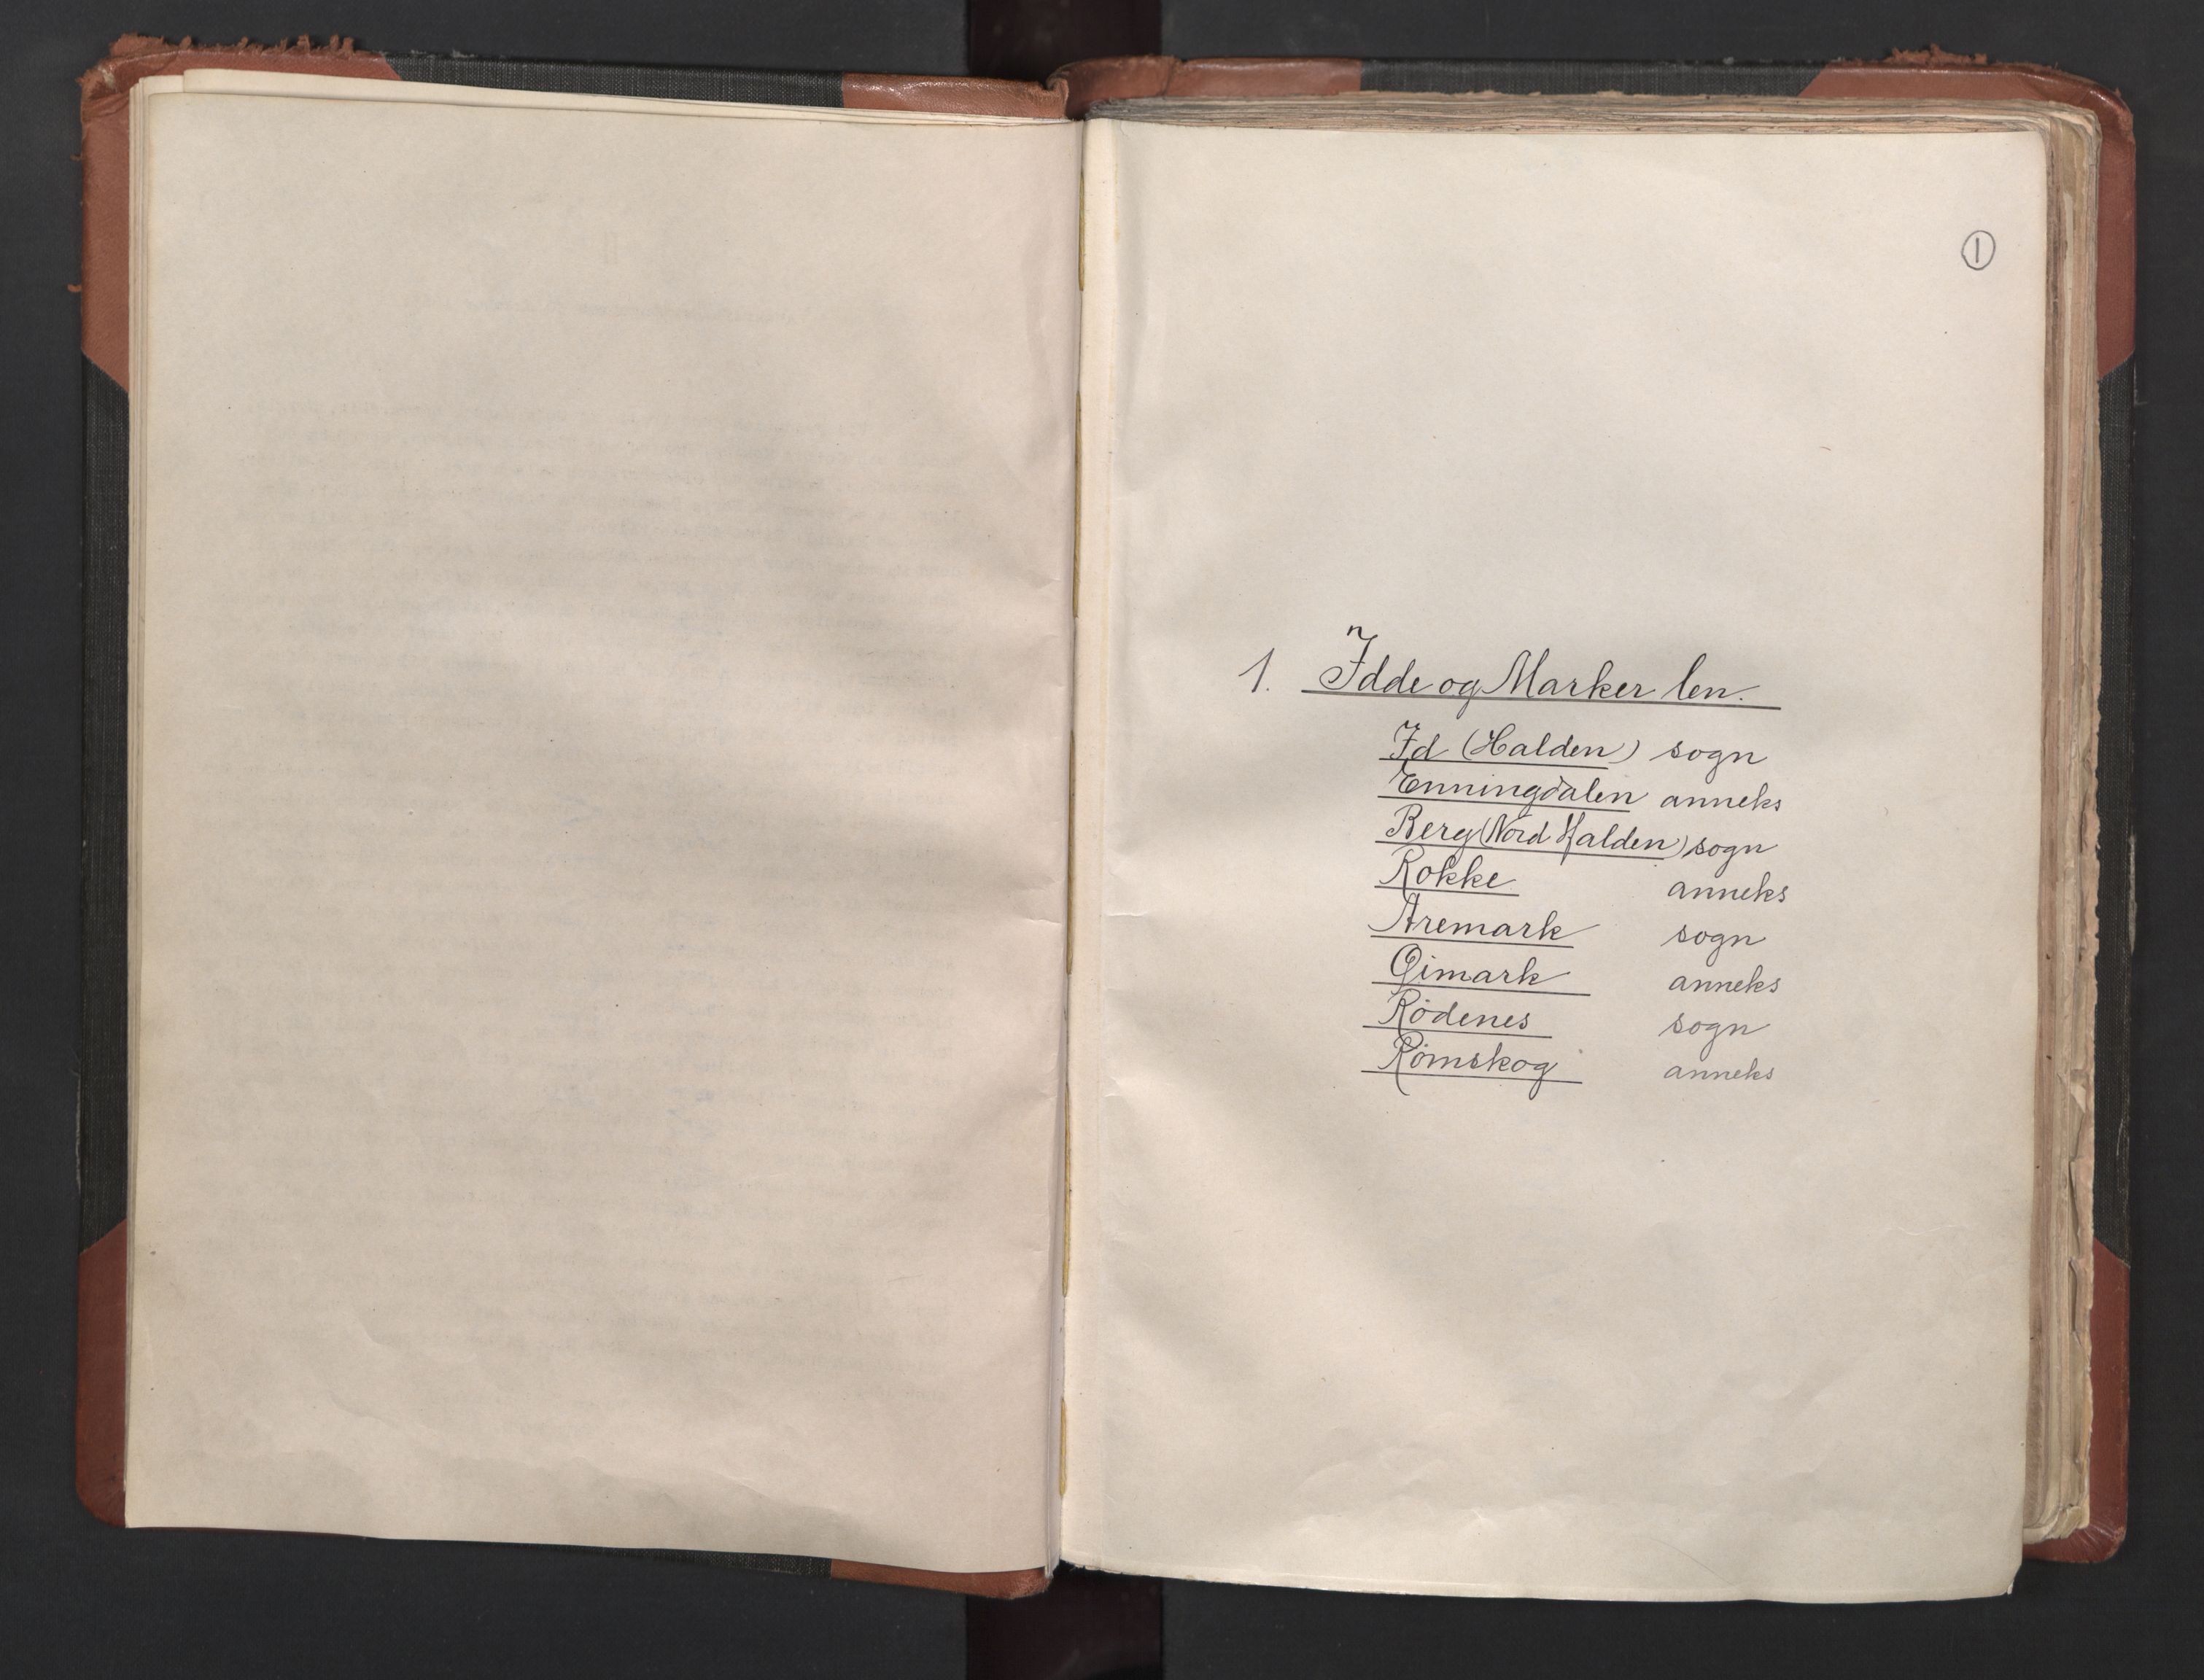 1
1. Idde og Marker len.
Id (Halden) sogn
Enningdalen anneks
Berg (Nord Halden) sogn
Rokke anneks
Aremark sogn
Øimark anneks
Rødenes sogn
Rømskog anneks